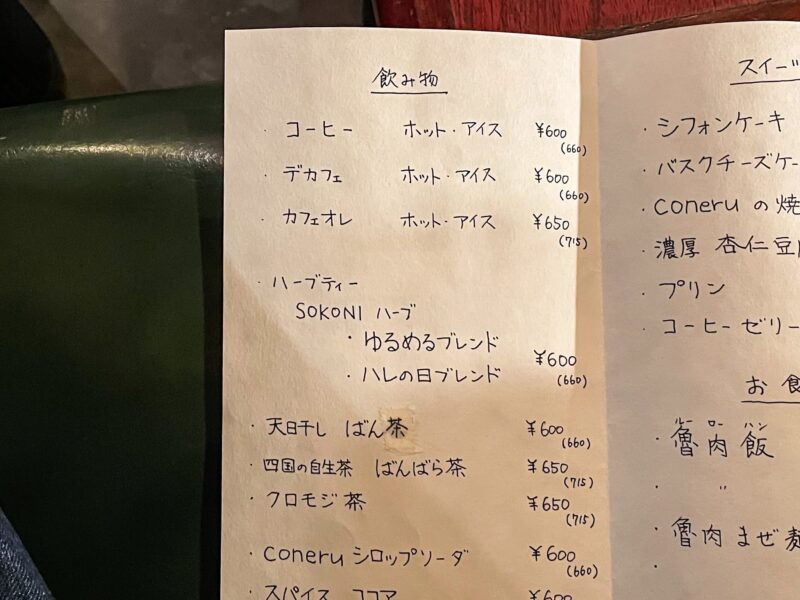 飲み物
・コーヒー ホット・アイス ¥600
(660)
・デカフェ ホット・アイス ¥600
(660)
・カフェオレ ホット・アイス ¥650
(715)
・ハーブティー
SOKONI ハーブ
・ゆるめるブレンド
・ハレの日ブレンド ¥600
(660)
・天日干し ばん茶 ¥600
(660)
・四国の自生茶 ばんばら茶 ¥650
(715)
・クロモジ茶 ¥650
(715)
・coneru シロップソーダ ¥600
(660)
・スパイス ココア ¥600
スイーツ
・シフォンケーキ
・バスクチーズケー
・coneru の焼
・濃厚 杏仁豆
・プリン
・コーヒーゼリー
お食
ルーローハン
・魯肉飯
・〃
・魯肉まぜ麺